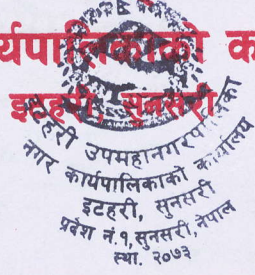 र्यपालिकाको क
इटहरी, सुनसरी
इटहरी उपमहानगरपालिका
नगर कार्यपालिकाको कार्यालय
इटहरी, सुनसरी
प्रदेश नं. १, सुनसरी, नेपाल
स्था. २०७३